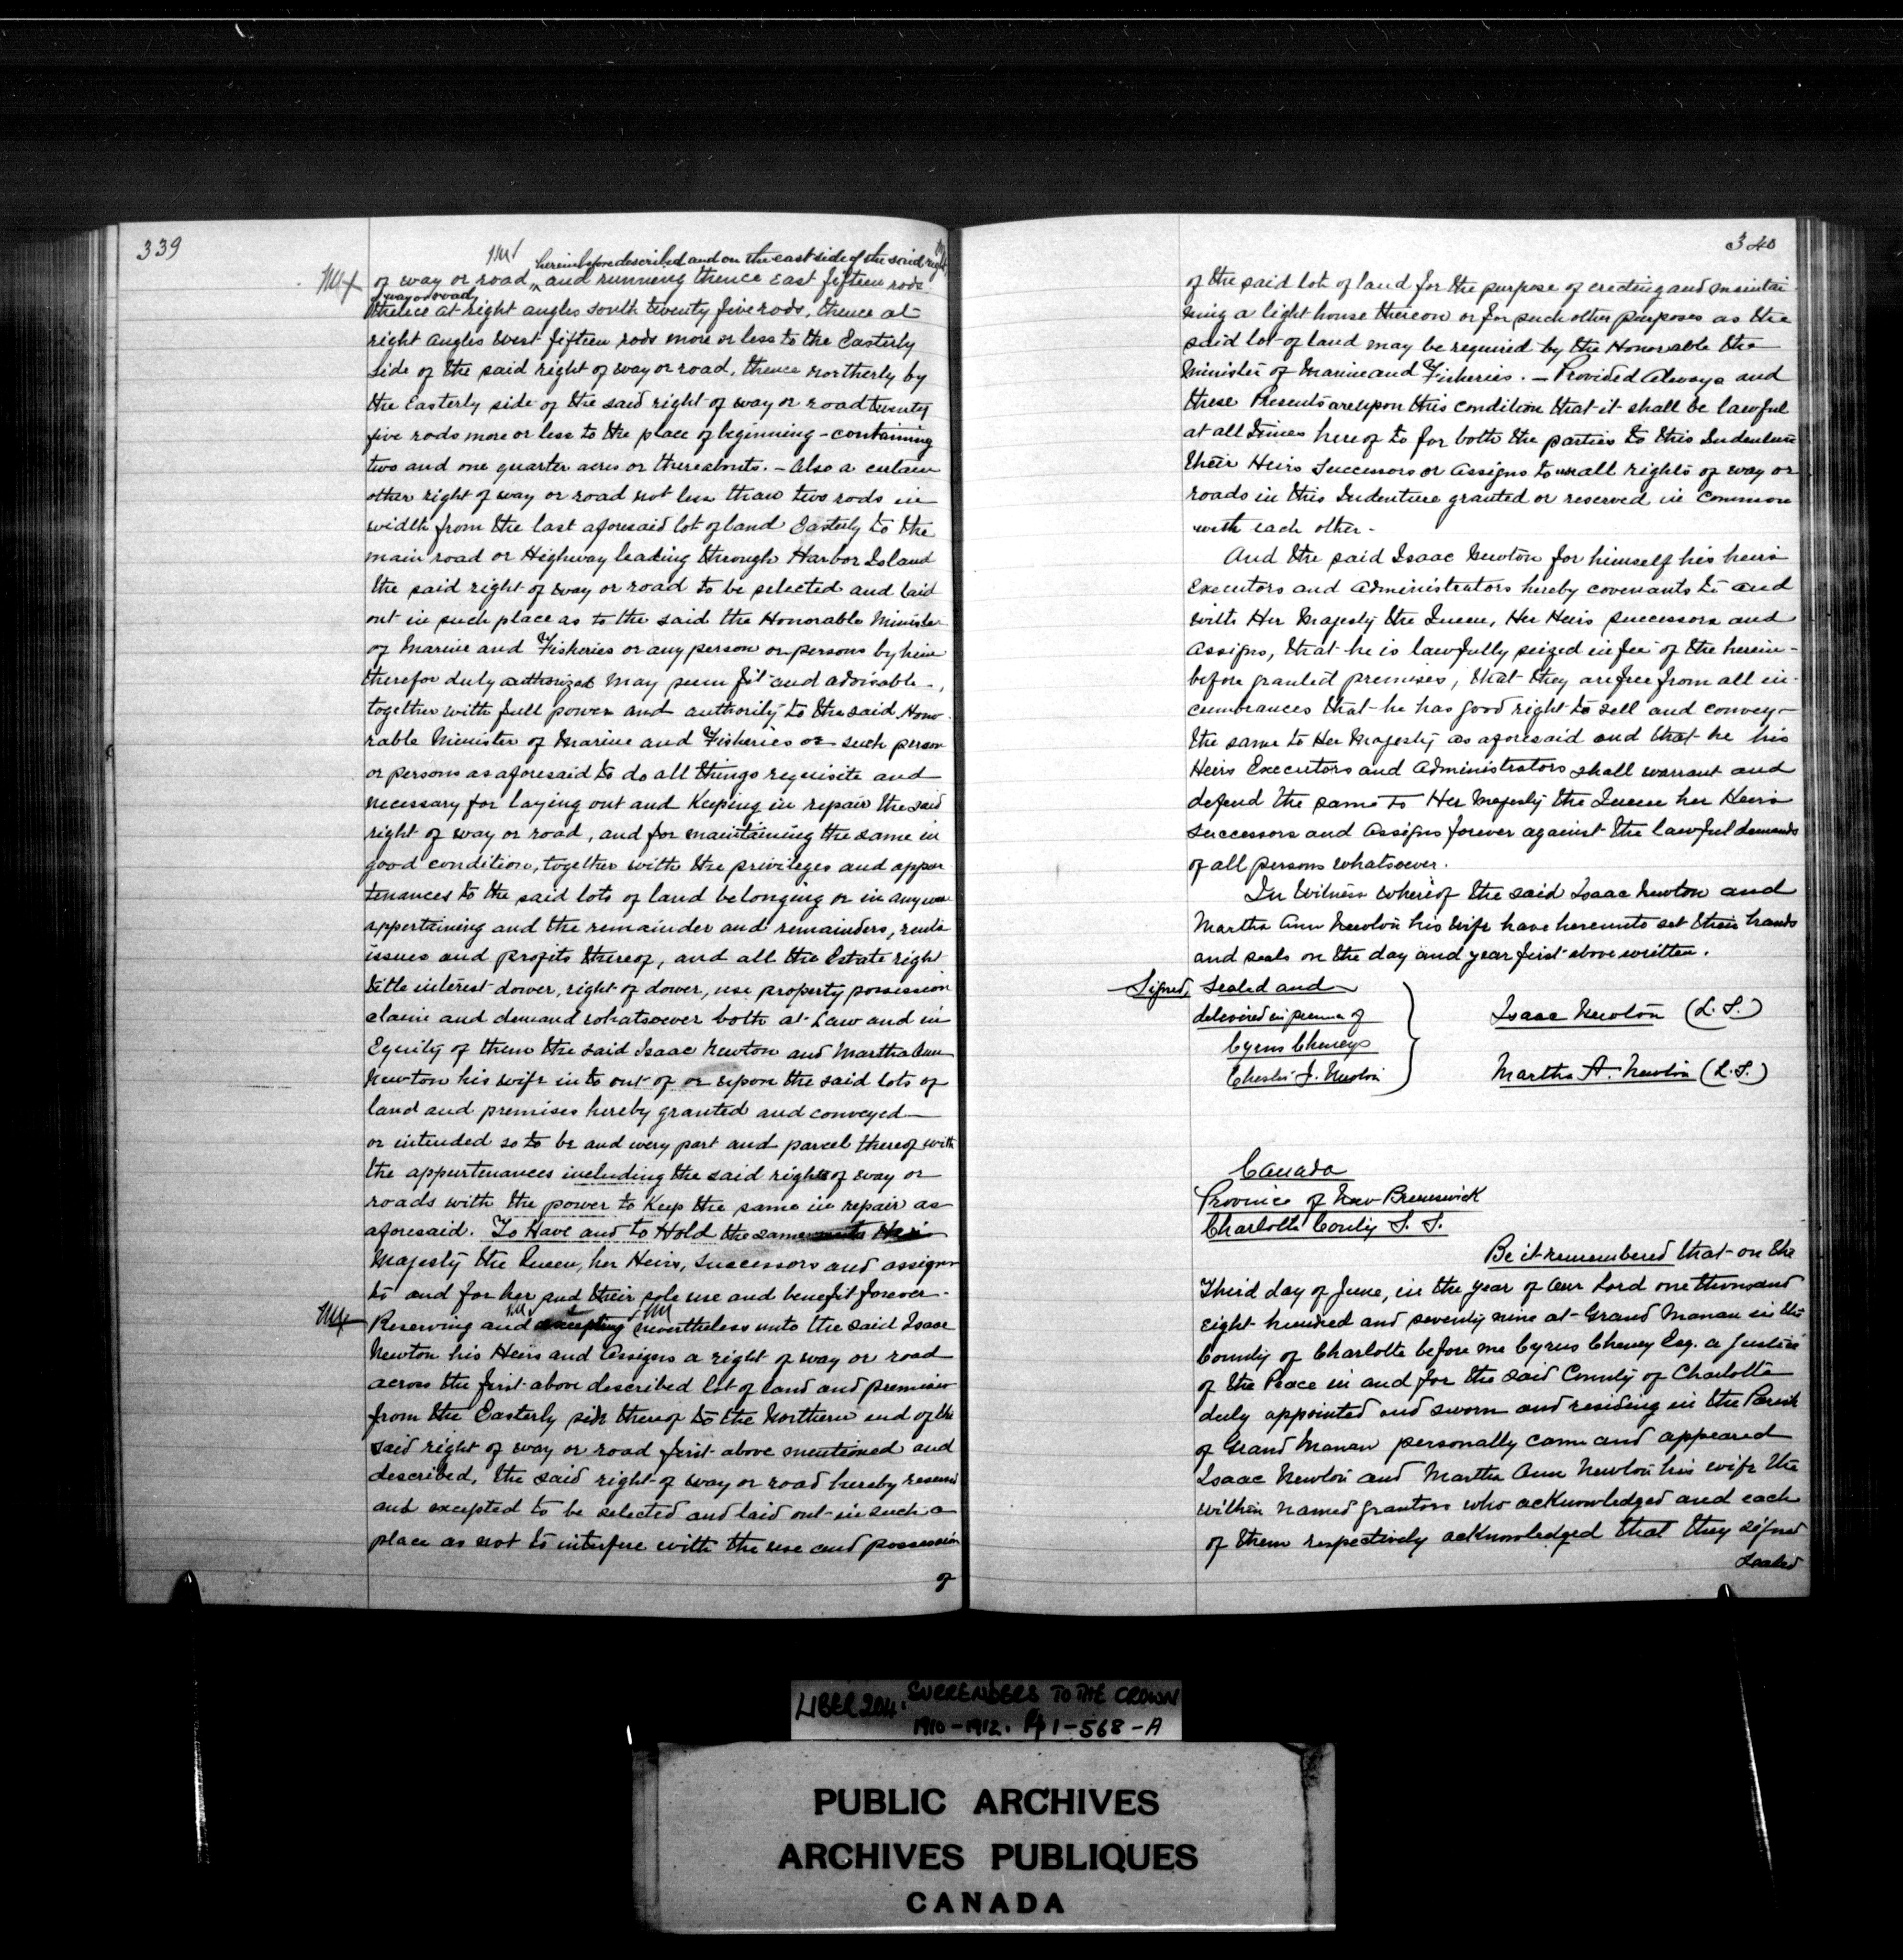 339
hereinbefore described and on the east side of the said right
of way or road, and running thence East fifteen rods
of way or road
thence at right angles south twenty five rods, thence at
right angles west fifteen rods more or less to the Easterly
side of the said right of way or road, thence northerly by
the Easterly side of the said right of way or road twenty
five rods more or less to the place of beginning - containing
two and one quarter acres or thereabouts. - Also a certain
other right of way or road not less than two rods in
width from the last aforesaid lot of land Easterly to the
main road or Highway leading through Harbor Island
the said right of way or road to be selected and laid
out in such place as to the said the Honorable Minister
of Marine and Fisheries or any person or persons by him
therefor duly authorized may seem fit and advisable,
together with full power and authority to the said Hono-
rable Minister of Marine and Fisheries or such person
or persons as aforesaid to do all things requisite and
necessary for laying out and Keeping in repair the said
right of way or road, and for maintaining the same in
good condition, together with the privileges and appur
tenances to the said lots of land belonging or in anywise
appertaining and the remainder and remainders, rents
issues and profits thereof, and all the Estate right
title interest dower, right of dower, use property possession
claim and demand whatsoever both at Law and in
Equity of them the said Isaac Newton and Martha Ann
Newton his wife into out of or upon the said lots of
land and premises hereby granted and conveyed
or intended so to be and every part and parcel thereof with
the appurtenances including the said rights of way or
roads with the power to Keep the same in repair as
aforesaid. To Have and to Hold the same unto Her
Majesty the Queen, her Heirs, Successors and assigns
to and for her and their sole use and benefit forever-
Reserving and excepting nevertheless unto the said Isaac
Newton his Heirs and Assigns a right of way or road
across the first above described lot of land and premises
from the Easterly side thereof to the Northern end of the
said right of way or road first above mentioned and
described, the said right of way or road hereby reserved
and excepted to be selected and laid out in such a
place as not to interfere with the use and possession
of
340
of the said lot of land for the purpose of erecting and maintai
ning a light house thereon or for such other purposes as the
said lot of land may be required by the Honorable the
Minister of Marine and Fisheries. - Provided Always and
these Presents are upon this condition that it shall be lawful
at all times hereof to for both the parties to this Indenture
their Heirs Successors or Assigns to use all rights of way or
roads in this Indenture granted or reserved in common
with each other-
And the said Isaac Newton for himself his heirs
Executors and Administrators hereby covenants to and
with Her Majesty the Queen, Her Heirs Successors and
Assigns, that he is lawfully seized in fee of the herein-
before granted premises, that they are free from all in-
cumbrances that he has good right to sell and convey
the same to Her Majesty as aforesaid and that he his
Heirs Executors and Administrators shall warrant and
defend the same to Her Majesty the Queen her Heirs
Successors and Assigns forever against the lawful demands
of all persons whatsoever.
In Witness Whereof the said Isaac Newton and
Martha Ann Newton his wife have hereunto set their hands
and seals on the day and year first above written.
Signed, Sealed and
delivered in presence of
Cyrus Cheney
Chester J. Newton
Isaac Newton (L.S.)
Martha A. Newton (L.S.)
Canada
Province of New Brunswick
Charlotte County S. S.
Be it remembered that on the
Third day of June, in the year of Our Lord one thousand
eight hundred and seventy nine at Grand Manan in the
County of Charlotte before me Cyrus Cheney Esq. a Justice
of the Peace in and for the said County of Charlotte
duly appointed and sworn and residing in the Parish
of Grand Manan personally came and appeared
Isaac Newton and Martha Ann Newton his wife the
within named grantors who acknowledged and each
of them respectively acknowledged that they signed
sealed
LIBER 204. SURRENDERS TO THE CROWN
1910-1912. Pp 1-568-A
PUBLIC ARCHIVES
ARCHIVES PUBLIQUES
CANADA